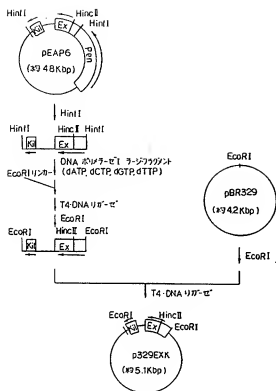 HintI
HincII
HintI
Kil
Ex
Pen
pEAP6
(約4.8Kbp)
HintI
HintI
HincII
HintI
Kil
Ex
DNA ポリメラーゼI ラージフラグメント
(dATP, dCTP, dGTP, dTTP)
EcoRIリンカー
T4·DNAリガーゼ
EcoRI
EcoRI
HincII
EcoRI
Kil
Ex
EcoRI
pBR329
(約4.2Kbp)
EcoRI
EcoRI
T4·DNAリガーゼ
EcoRI
HincII
Kil
Ex
EcoRI
p329EXK
(約5.1Kbp)